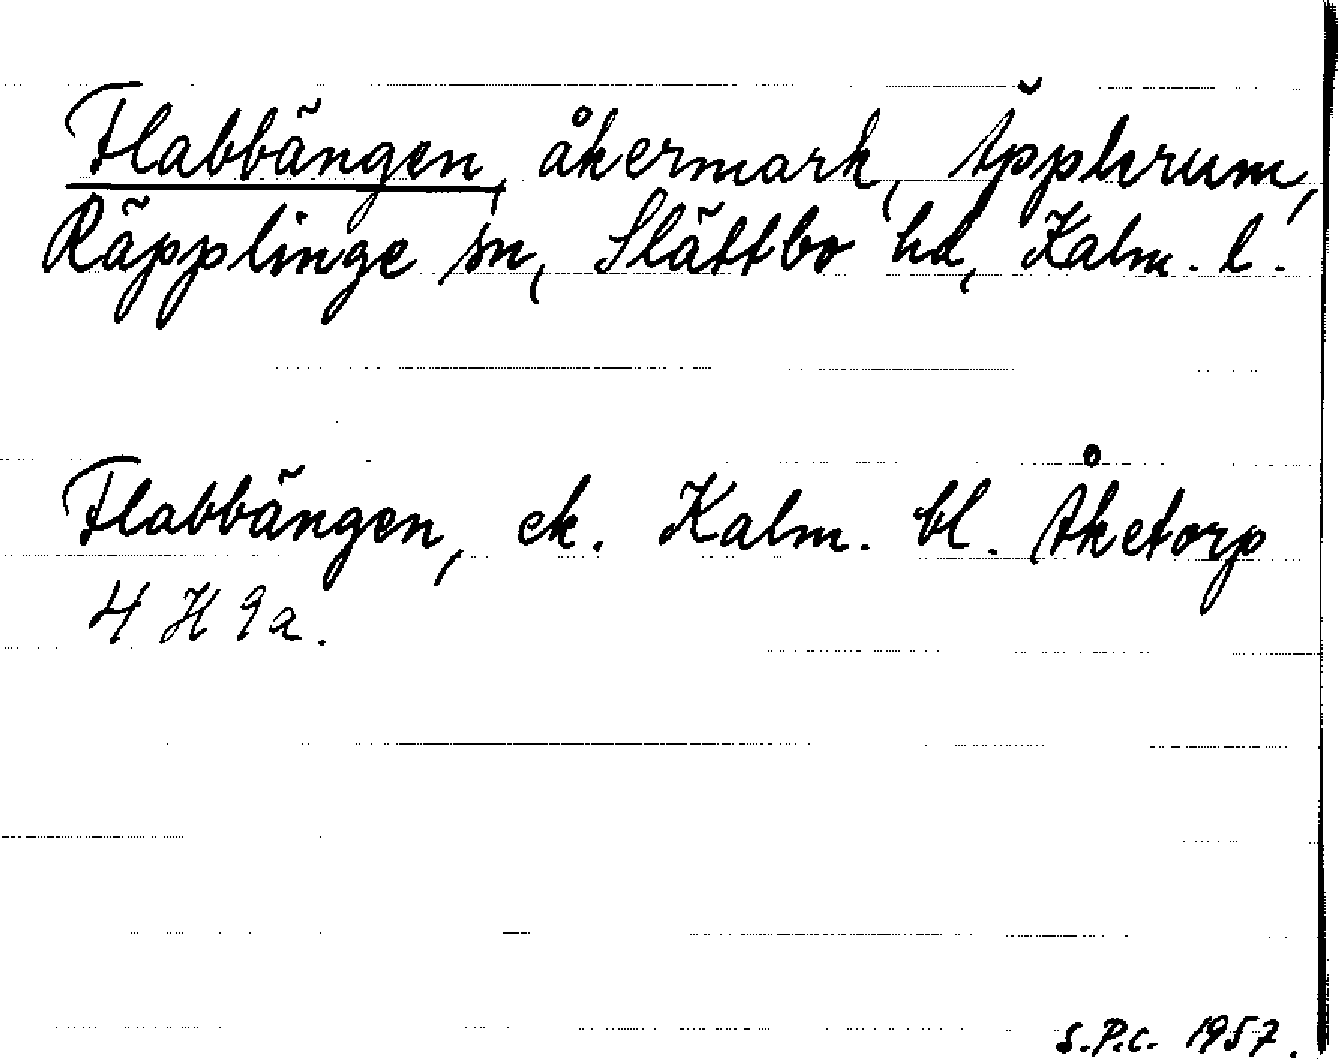 Flabbängen, åkermark, Äpplerum,
Räpplinge sn, Slättbo hd, Kalm. l.
Flabbängen, ek. Kalm. bl. Åketorp
4 H 9a.
S.P.C. 1957.